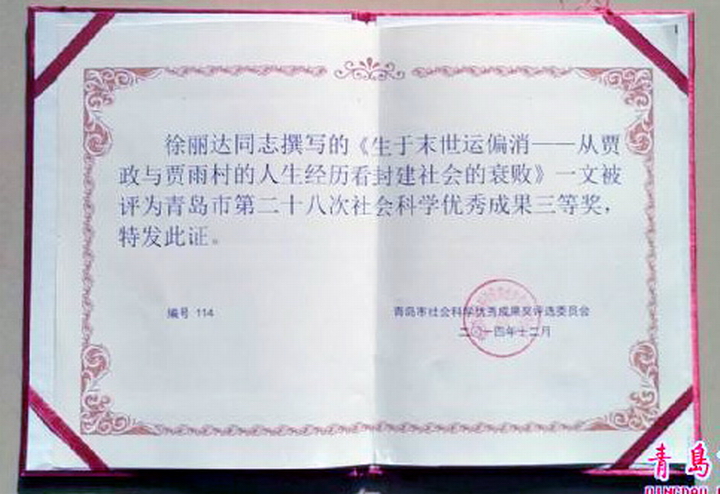 徐丽达同志撰写的《生于末世运偏消——从贾
政与贾雨村的人生经历看封建社会的衰败》一文被
评为青岛市第二十八次社会科学优秀成果三等奖，
特发此证。
编号 114
青岛市社会科学优秀成果奖评选委员会
二〇一四年十二月
青島